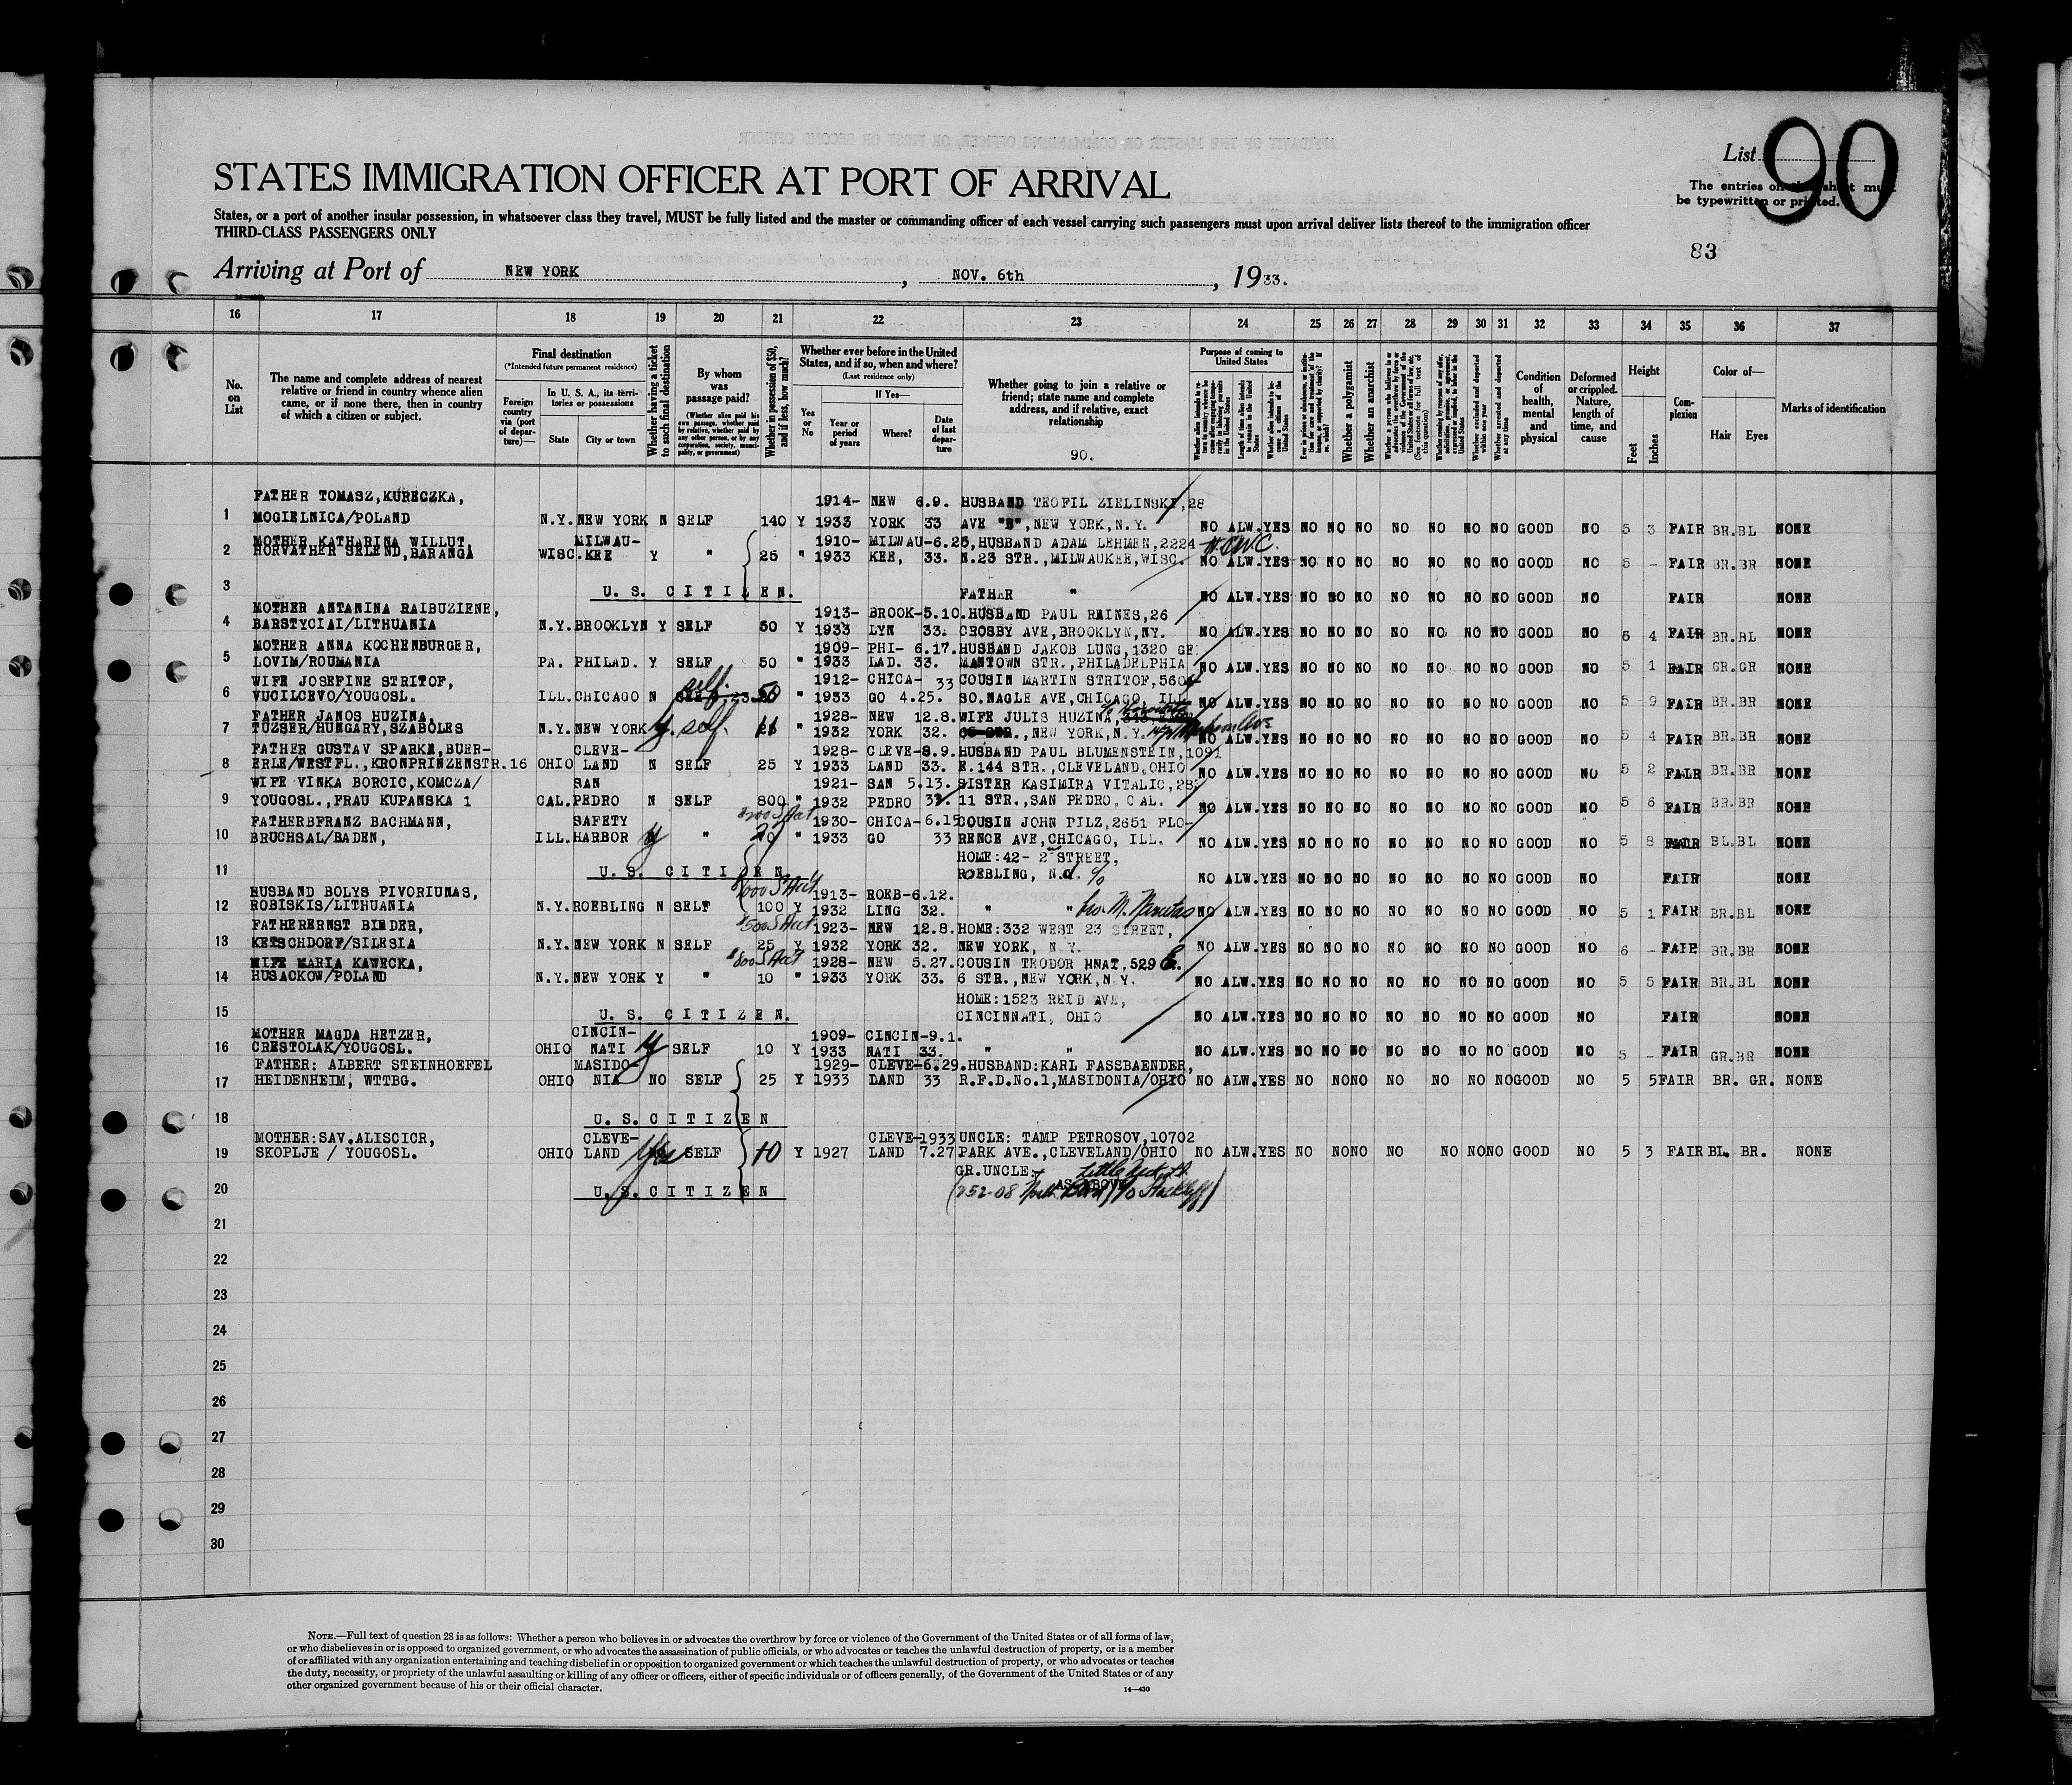 List 90
STATES IMMIGRATION OFFICER AT PORT OF ARRIVAL
The entries on this sheet must
be typewritten or printed.
States, or a port of another insular possession, in whatsoever class they travel, MUST be fully listed and the master or commanding officer of each vessel carrying such passengers must upon arrival deliver lists thereof to the immigration officer
THIRD-CLASS PASSENGERS ONLY
83
Arriving at Port of NEW YORK, NOV. 6th, 1933.
16 17 18 19 20 21 22 23 24 25 26 27 28 29 30 31 32 33 34 35 36 37
No. on List
The name and complete address of nearest relative or friend in country whence alien came, or if none there, then in country of which a citizen or subject.
Final destination
(*Intended future permanent residence)
Foreign country via (port of departure)—
In U. S. A., its territories or possessions
State
City or town
Whether having a ticket to such final destination
By whom was passage paid?
(Whether alien paid his own passage, whether paid by relative, whether paid by any other person, or by any corporation, society, municipality, or government)
Whether in possession of $50, and if less, how much?
Whether ever before in the United States, and if so, when and where?
(Last residence only)
Yes or No
If Yes—
Year or period of years
Where?
Date of last departure
Whether going to join a relative or friend; state name and complete address, and if relative, exact relationship
90.
Purpose of coming to United States
Whether a polygamist
Whether an anarchist
Condition of health, mental and physical
Deformed or crippled. Nature, length of time, and cause
Height
Feet
Inches
Complexion
Color of—
Hair
Eyes
Marks of identification
FATHER TOMASZ,KURECZKA, 1914- NEW 6.9. HUSBAND TEOFIL ZIELINSKI,28
1 MOGIELNICA/POLAND N.Y. NEW YORK N SELF 140 Y 1933 YORK 33 AVE "B",NEW YORK,N.Y. NO ALW. YES NO NO NO NO NO NO NO GOOD NO 5 3 FAIR BR. BL NONE
MOTHER KATHARINA WILLUT, MILWAU- 1910- MILWAU-6.25,HUSBAND ADAM LEHMEN,2224
2 HORVATHER SELEND,BARANGA WISC. KEE Y " 25 " 1933 KEE, 33. N.23 STR.,MILWAUKEE,WISC. NO ALW. YES NO NO NO NO NO NO NO GOOD NO 5 - FAIR BR. BR NONE
3 U. S. CITIZEN. FATHER " NO ALW. YES NO NO NO NO NO NO NO GOOD NO FAIR NONE
MOTHER ANTANINA RAIBUZIENE, 1913- BROOK-5.10.HUSBAND PAUL RAINES,26
4 BARSTYCIAI/LITHUANIA N.Y. BROOKLYN Y SELF 50 Y 1933 LYN 33. CROSBY AVE,BROOKLYN,NY. NO ALW. YES NO NO NO NO NO NO NO GOOD NO 5 4 FAIR BR. BL NONE
MOTHER ANNA KOCHENBURGER, 1909- PHI- 6.17.HUSBAND JAKOB LUNG,1320 GE
5 LOVIM/ROUMANIA PA. PHILAD. Y SELF 50 " 1933 LAD. 33. MANTOWN STR.,PHILADELPHIA NO ALW. YES NO NO NO NO NO NO NO GOOD NO 5 1 FAIR GR. GR NONE
WIFE JOSEFINE STRITOF, self. 1912- CHICA- 33 COUSIN MARTIN STRITOF,5604
6 VUCILCEVO/YOUGOSL. ILL. CHICAGO N 50 " 1933 GO 4.25. SO.NAGLE AVE,CHICAGO, ILL NO ALW. YES NO NO NO NO NO NO NO GOOD NO 5 9 FAIR BR. BR NONE
FATHER JANOS HUZINA, 1928- NEW 12.8. WIFE JULIS HUZINA,
7 TUZSER/HUNGARY,SZABOLES N.Y. NEW YORK y. self. " 1932 YORK 32. NEW YORK,N.Y. NO ALW. YES NO NO NO NO NO NO NO GOOD NO 5 4 FAIR BR. BR NONE
FATHER GUSTAV SPARKE,BUER- CLEVE- 1928- CLEVE-9.9.HUSBAND PAUL BLUMENSTEIN,1091
8 ERLE/WESTFL.,KRONPRINZENSTR.16 OHIO LAND N SELF 25 Y 1933 LAND 33. E.144 STR.,CLEVELAND,OHIO NO ALW. YES NO NO NO NO NO NO NO GOOD NO 5 2 FAIR BR. BR NONE
WIFE VINKA BORCIC,KOMCZA/ SAN 1921- SAN 5.13. SISTER KASIMIRA VITALIC,28
9 YOUGOSL.,FRAU KUPANSKA 1 CAL. PEDRO N SELF 800 " 1932 PEDRO 32. 11 STR.,SAN PEDRO, CAL. NO ALW. YES NO NO NO NO NO NO NO GOOD NO 5 6 FAIR BR. BR NONE
FATHERBFRANZ BACHMANN, SAFETY 1930- CHICA-6.15COUSIN JOHN PILZ,2651 FLO-
10 BRUCHSAL/BADEN, ILL. HARBOR y " " 1933 GO 33 RENCE AVE,CHICAGO, ILL. NO ALW. YES NO NO NO NO NO NO NO GOOD NO 5 8 FAIR BL. BL NONE
HOME:42- 2 STREET,
11 U. S. CITIZEN ROEBLING, c/o NO ALW. YES NO NO NO NO NO NO NO GOOD NO FAIR NONE
HUSBAND BOLYS PIVORIUNAS, 1913- ROEB-6.12.
12 ROBISKIS/LITHUANIA N.Y. ROEBLING N SELF 100 Y 1932 LING 32. " " NO ALW. YES NO NO NO NO NO NO NO GOOD NO 5 1 FAIR BR. BL NONE
FATHERERNST BIEDER, 1923- NEW 12.8. HOME:332 WEST 23 STREET,
13 KETSCHDORF/SILESIA N.Y. NEW YORK N SELF 25 Y 1932 YORK 32. NEW YORK, N.Y. NO ALW. YES NO NO NO NO NO NO NO GOOD NO 6 - FAIR BR. BR NONE
WIFE MARIA KAWECKA, 1928- NEW 5.27. COUSIN TEODOR HNAT,529 E.
14 HUSACKOW/POLAND N.Y. NEW YORK Y " 10 " 1933 YORK 33. 6 STR.,NEW YORK,N.Y. NO ALW. YES NO NO NO NO NO NO NO GOOD NO 5 5 FAIR BR. BL NONE
HOME:1523 REID AVE,
15 U. S. CITIZEN. CINCINNATI, OHIO NO ALW. YES NO NO NO NO NO NO NO GOOD NO FAIR NONE
MOTHER MAGDA HETZER, CINCIN- 1909- CINCIN-9.1.
16 CRESTOLAK/YOUGOSL. OHIO NATI y SELF 10 Y 1933 NATI 33. " " NO ALW. YES NO NO NO NO NO NO NO GOOD NO 5 - FAIR GR. BR NONE
FATHER: ALBERT STEINHOEFEL MASIDO- 1929- CLEVE-6.29.HUSBAND:KARL FASSBAENDER,
17 HEIDENHEIM, WTTBG. OHIO NIA NO SELF 25 Y 1933 LAND 33 R.F.D.No.1,MASIDONIA/OHIO NO ALW. YES NO NO NO NO NO NO NO GOOD NO 5 5 FAIR BR. GR. NONE
18 U. S. CITIZEN
MOTHER:SAV.ALISCICR, CLEVE- CLEVE-1933 UNCLE: TAMP PETROSOV,10702
19 SKOPLJE / YOUGOSL. OHIO LAND Yes SELF 10 Y 1927 LAND 7.27 PARK AVE.,CLEVELAND/OHIO NO ALW. YES NO NO NO NO NO NO NO GOOD NO 5 3 FAIR BL. BR. NONE
GR.UNCLE:
20 U. S. CITIZEN AS ABOVE
21
22
23
24
25
26
27
28
29
30
NOTE.—Full text of question 28 is as follows: Whether a person who believes in or advocates the overthrow by force or violence of the Government of the United States or of all forms of law,
or who disbelieves in or is opposed to organized government, or who advocates the assassination of public officials, or who advocates or teaches the unlawful destruction of property, or is a member
of or affiliated with any organization entertaining and teaching disbelief in or opposition to organized government or which teaches the unlawful destruction of property, or who advocates or teaches
the duty, necessity, or propriety of the unlawful assaulting or killing of any officer or officers, either of specific individuals or of officers generally, of the Government of the United States or of any
other organized government because of his or their official character.
14—430